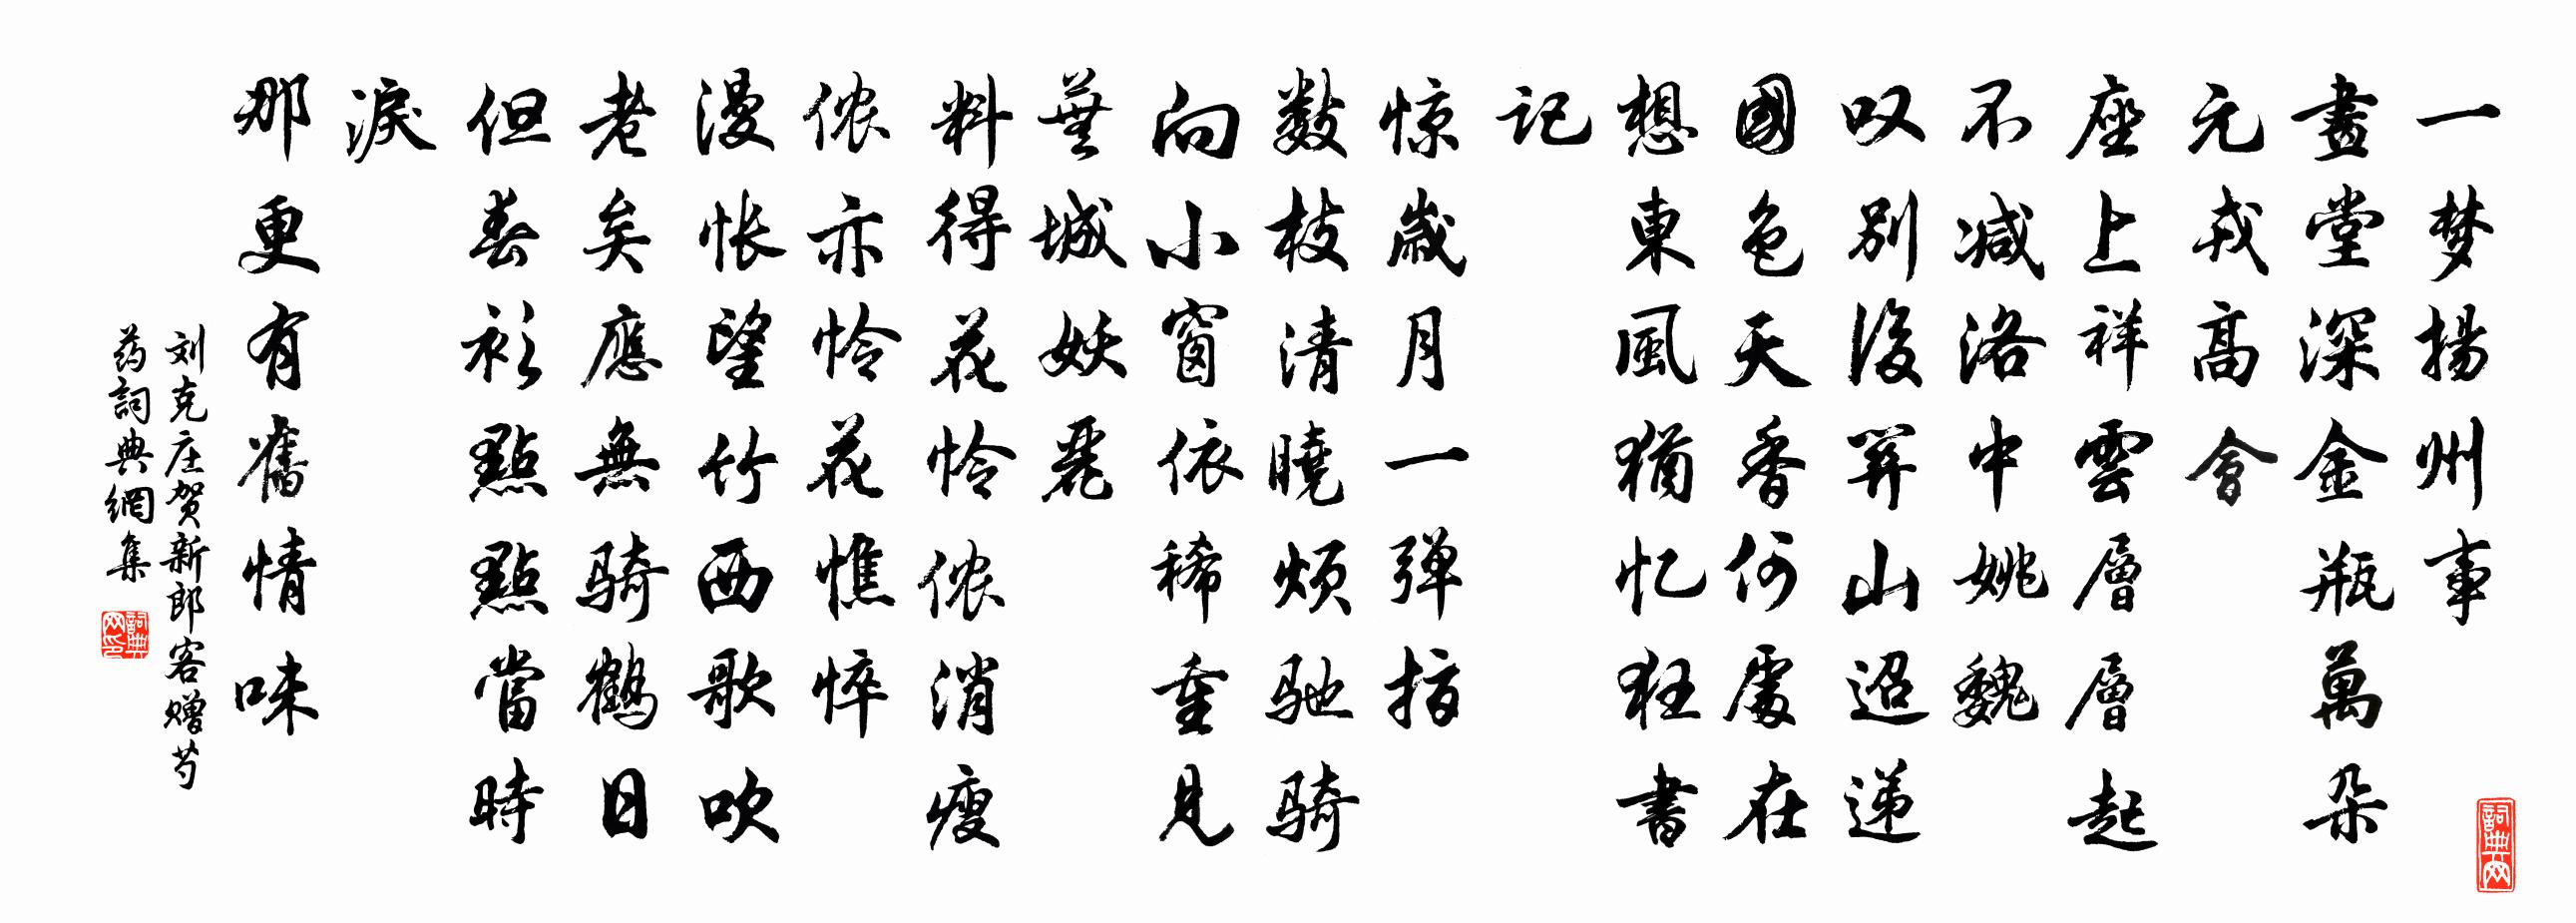 一梦揚州事
畫堂深金瓶萬朵
元戎高會
座上祥雲層層起
不减洛中姚魏
叹別後關山迢递
國色天香何處在
想東風猶忆狂書
記
惊歲月一弹指
数枝清曉烦驰骑
向小窗依稀重見
蕪城妖麗
料得花怜侬消瘦
侬亦怜花憔悴
漫怅望竹西歌吹
老矣應無骑鹤日
但春衫點點當時
淚
那更有舊情味
刘克庄贺新郎客赠芍
药詞典網集
詞典网印
詞典网